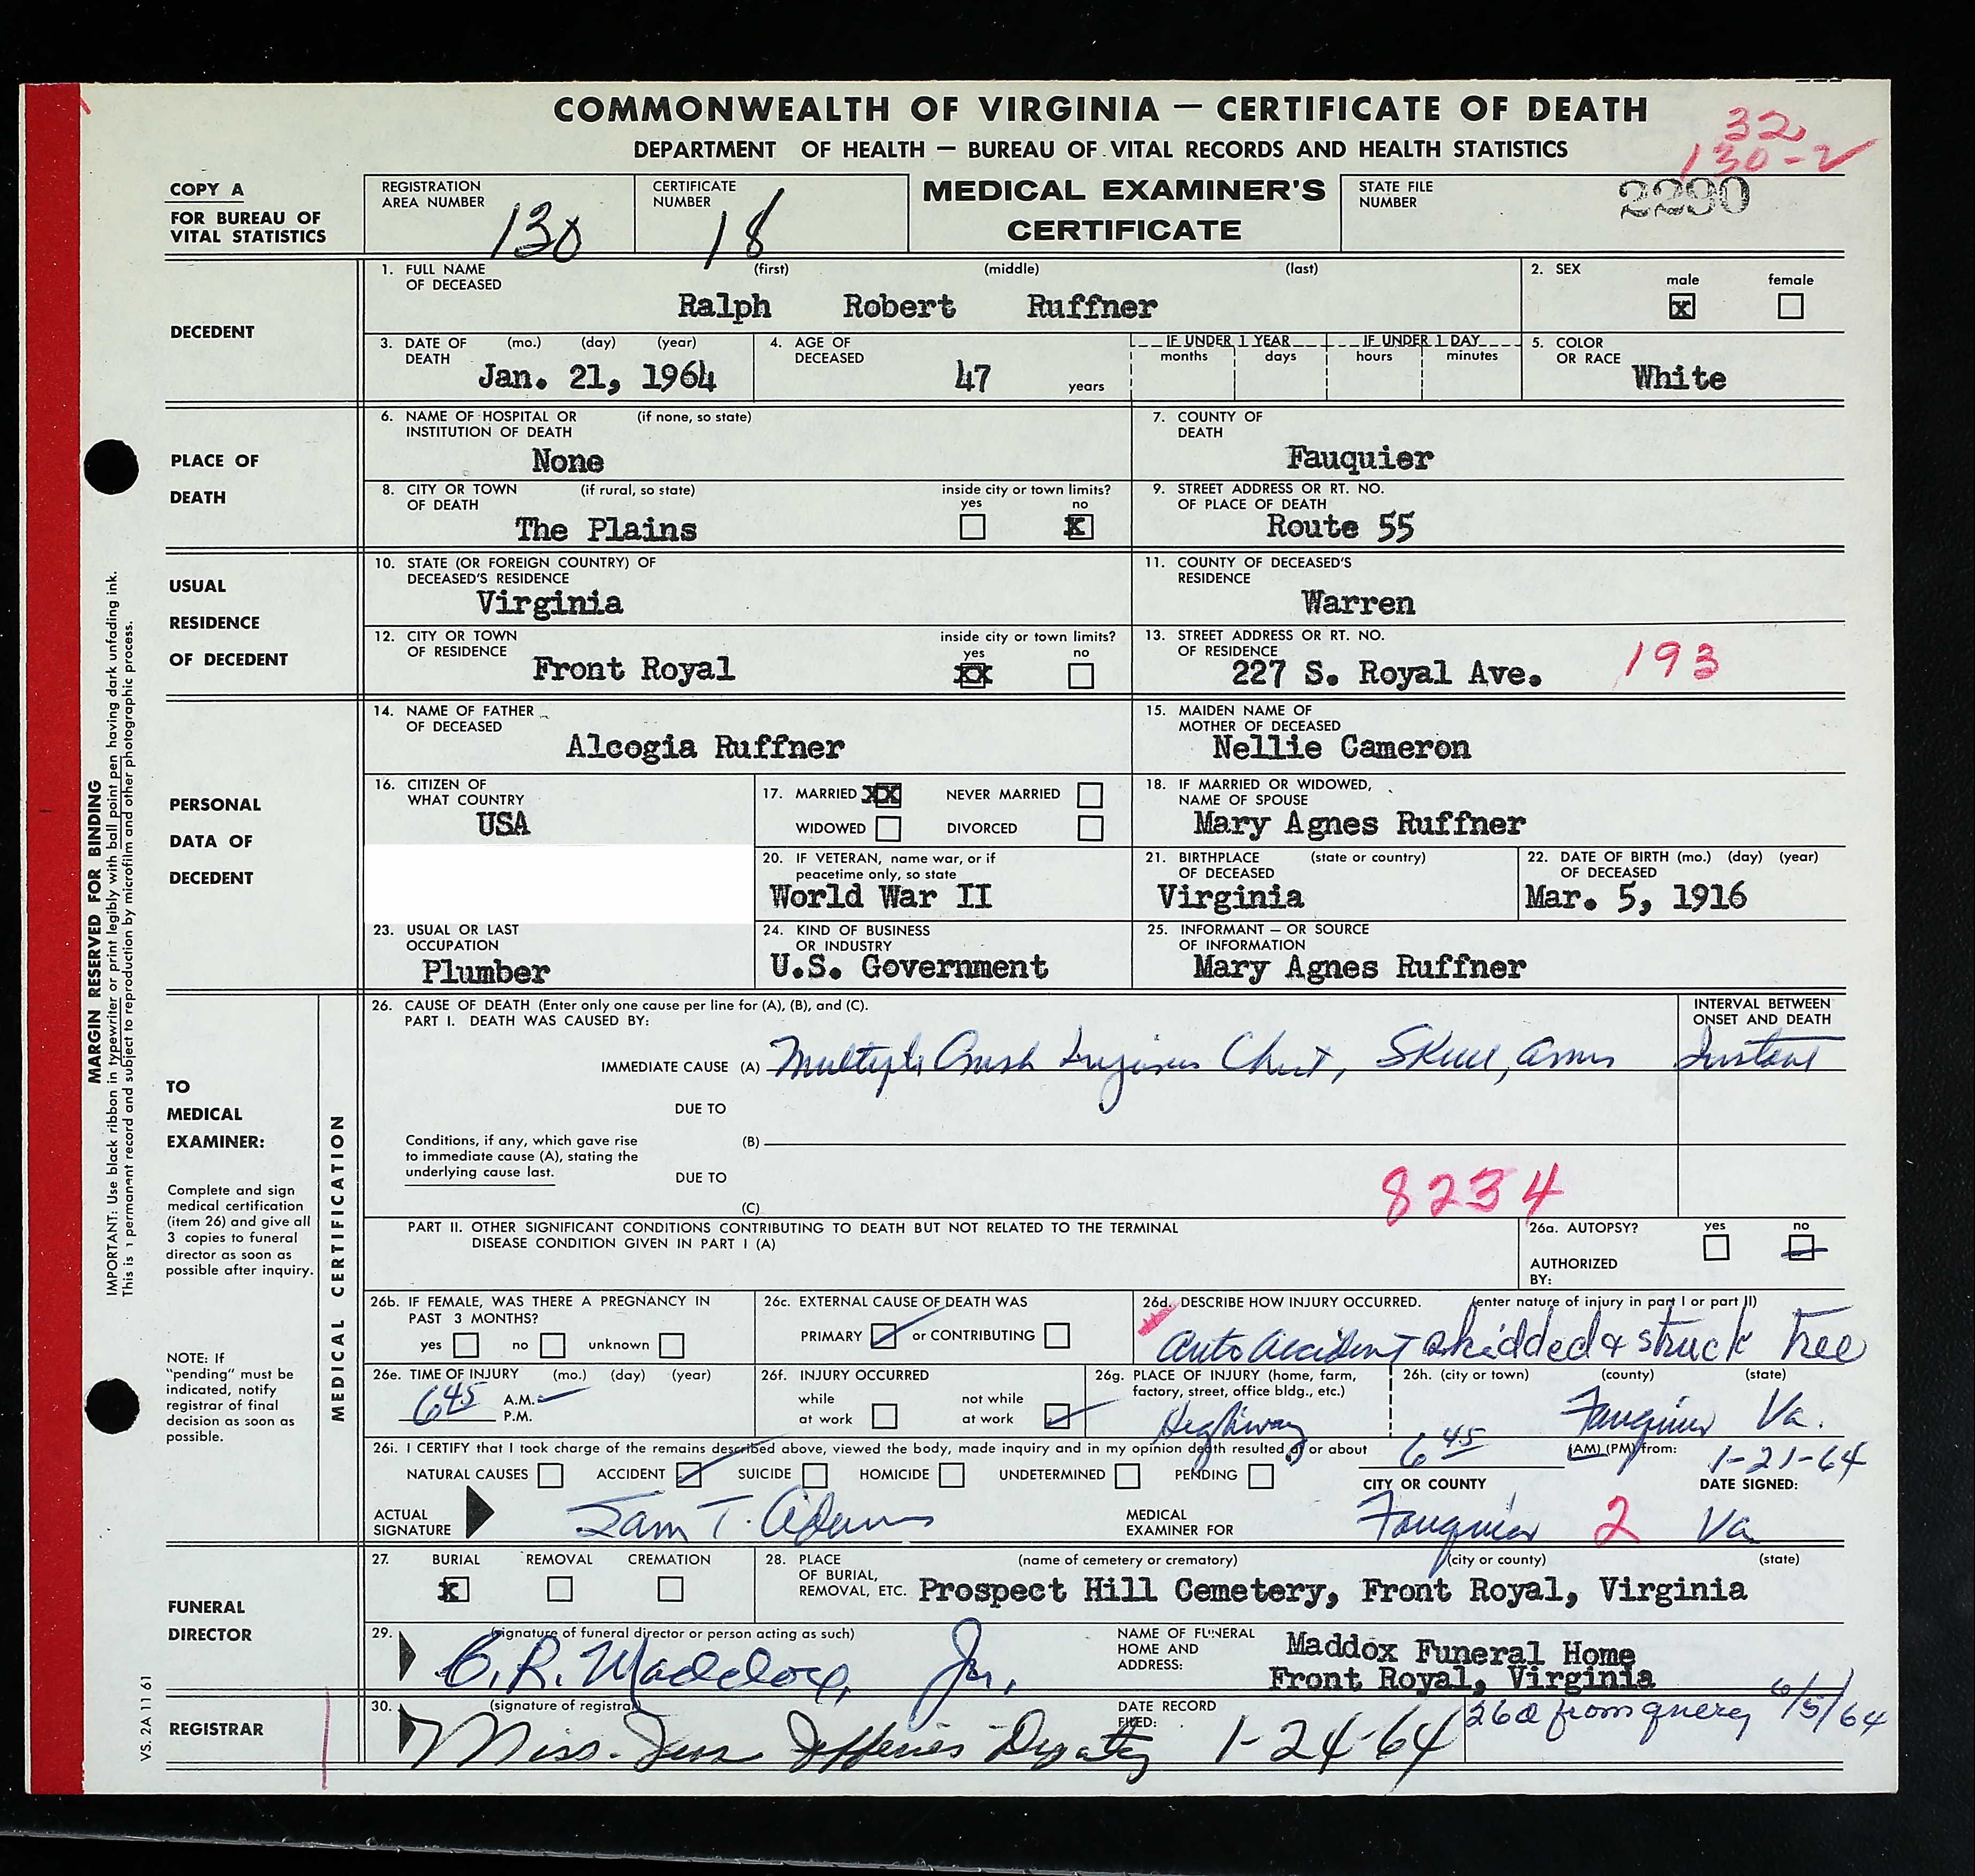 COMMONWEALTH OF VIRGINIA — CERTIFICATE OF DEATH
DEPARTMENT OF HEALTH — BUREAU OF VITAL RECORDS AND HEALTH STATISTICS
32
130-2
COPY A
FOR BUREAU OF
VITAL STATISTICS
REGISTRATION
AREA NUMBER
130
CERTIFICATE
NUMBER
18
MEDICAL EXAMINER'S
CERTIFICATE
STATE FILE
NUMBER
2290
DECEDENT
1. FULL NAME (first) (middle) (last)
OF DECEASED
Ralph Robert Ruffner
2. SEX
male female
X
3. DATE OF (mo.) (day) (year)
DEATH
Jan. 21, 1964
4. AGE OF
DECEASED
47 years
IF UNDER 1 YEAR IF UNDER 1 DAY
months days hours minutes
5. COLOR
OR RACE
White
PLACE OF
DEATH
6. NAME OF HOSPITAL OR (if none, so state)
INSTITUTION OF DEATH
None
7. COUNTY OF
DEATH
Fauquier
8. CITY OR TOWN (if rural, so state)
OF DEATH
The Plains
inside city or town limits?
yes no
X
9. STREET ADDRESS OR RT. NO.
OF PLACE OF DEATH
Route 55
USUAL
RESIDENCE
OF DECEDENT
10. STATE (OR FOREIGN COUNTRY) OF
DECEASED'S RESIDENCE
Virginia
11. COUNTY OF DECEASED'S
RESIDENCE
Warren
12. CITY OR TOWN
OF RESIDENCE
Front Royal
inside city or town limits?
yes no
XX
13. STREET ADDRESS OR RT. NO.
OF RESIDENCE
227 S. Royal Ave.
193
PERSONAL
DATA OF
DECEDENT
14. NAME OF FATHER
OF DECEASED
Alcogia Ruffner
15. MAIDEN NAME OF
MOTHER OF DECEASED
Nellie Cameron
16. CITIZEN OF
WHAT COUNTRY
USA
17. MARRIED XX NEVER MARRIED
WIDOWED DIVORCED
18. IF MARRIED OR WIDOWED,
NAME OF SPOUSE
Mary Agnes Ruffner
20. IF VETERAN, name war, or if
peacetime only, so state
World War II
21. BIRTHPLACE (state or country)
OF DECEASED
Virginia
22. DATE OF BIRTH (mo.) (day) (year)
OF DECEASED
Mar. 5, 1916
23. USUAL OR LAST
OCCUPATION
Plumber
24. KIND OF BUSINESS
OR INDUSTRY
U.S. Government
25. INFORMANT — OR SOURCE
OF INFORMATION
Mary Agnes Ruffner
MARGIN RESERVED FOR BINDING
IMPORTANT: Use black ribbon in typewriter or print legibly with ball point pen having dark unfading ink.
This is a permanent record and subject to reproduction by microfilm and other photographic process.
TO
MEDICAL
EXAMINER:
Complete and sign
medical certification
(item 26) and give all
3 copies to funeral
director as soon as
possible after inquiry.
NOTE: If
"pending" must be
indicated, notify
registrar of final
decision as soon as
possible.
MEDICAL CERTIFICATION
26. CAUSE OF DEATH (Enter only one cause per line for (A), (B), and (C).
PART I. DEATH WAS CAUSED BY:
INTERVAL BETWEEN
ONSET AND DEATH
IMMEDIATE CAUSE (A) Multiple Crush Injuries Chest, Skull, arms Instant
DUE TO
Conditions, if any, which gave rise
to immediate cause (A), stating the
underlying cause last.
(B)
DUE TO
(C)
8234
PART II. OTHER SIGNIFICANT CONDITIONS CONTRIBUTING TO DEATH BUT NOT RELATED TO THE TERMINAL
DISEASE CONDITION GIVEN IN PART I (A)
26a. AUTOPSY? yes no
AUTHORIZED
BY:
26b. IF FEMALE, WAS THERE A PREGNANCY IN
PAST 3 MONTHS?
yes no unknown
26c. EXTERNAL CAUSE OF DEATH WAS
PRIMARY or CONTRIBUTING
26d. DESCRIBE HOW INJURY OCCURRED. (enter nature of injury in part I or part II)
Auto Accident skidded & struck tree
26e. TIME OF INJURY (mo.) (day) (year)
645 A.M.
P.M.
26f. INJURY OCCURRED
while not while
at work at work
26g. PLACE OF INJURY (home, farm,
factory, street, office bldg., etc.)
Highway
26h. (city or town) (county) (state)
Fauquier Va.
26i. I CERTIFY that I took charge of the remains described above, viewed the body, made inquiry and in my opinion death resulted at or about 6 45 (AM) (PM) from: 1-21-64
NATURAL CAUSES ACCIDENT SUICIDE HOMICIDE UNDETERMINED PENDING
CITY OR COUNTY DATE SIGNED:
ACTUAL
SIGNATURE
Sam T. Adams
MEDICAL
EXAMINER FOR
Fauquier 2 Va
FUNERAL
DIRECTOR
27. BURIAL REMOVAL CREMATION
X
28. PLACE (name of cemetery or crematory) (city or county) (state)
OF BURIAL,
REMOVAL, ETC. Prospect Hill Cemetery, Front Royal, Virginia
29. (signature of funeral director or person acting as such)
C. R. Maddox, Jr.
NAME OF FUNERAL
HOME AND
ADDRESS:
Maddox Funeral Home
Front Royal, Virginia
REGISTRAR
30. (signature of registrar)
Miss. Jefferies Deputy
DATE RECORD
FILED:
1-24-64
26d from query 6/5/64
VS. 2A 11 61